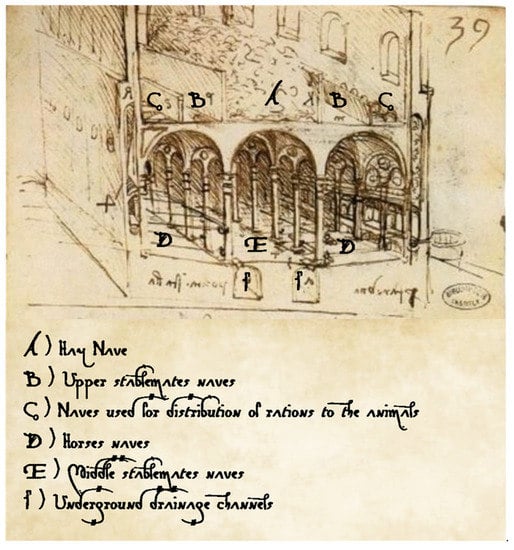 39
C B A B C
D E D
f f
A) Hay Nave
B) Upper stablemates naves
C) Naves used for distribution of rations to the animals
D) Horses naves
E) Middle stablemates naves
f) Underground drainage channels